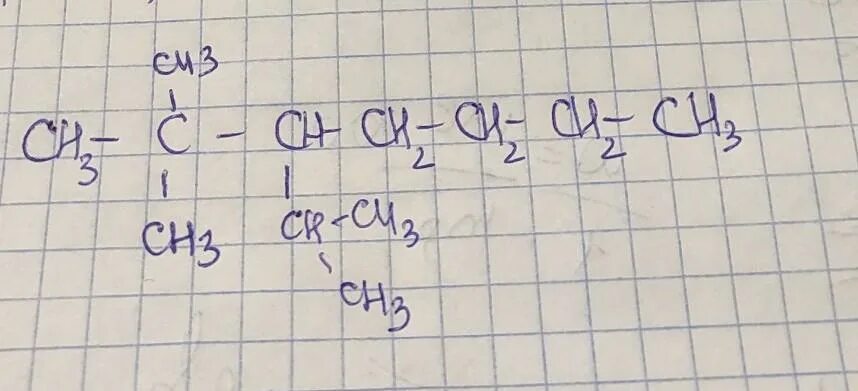 CH3
CH3- C - CH- CH2- CH2- CH2- CH3
CH3 CH-CH3
CH3